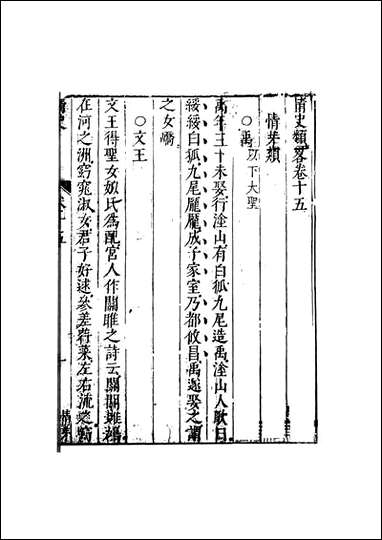 情史類畧卷十五
情芽類
○禹以下大聖
禹年三十未娶行塗山有白狐九尾造禹塗山人歌曰
綏綏白狐九尾龐龐成子家室乃都攸昌禹遂娶之謂
之女嬌
○文王
文王得聖女姒氏為配宮人作關雎之詩云關關雎鳩
在河之洲窈窕淑女君子好逑參差荇菜左右流之窈
情史
卷十五
一
情芽